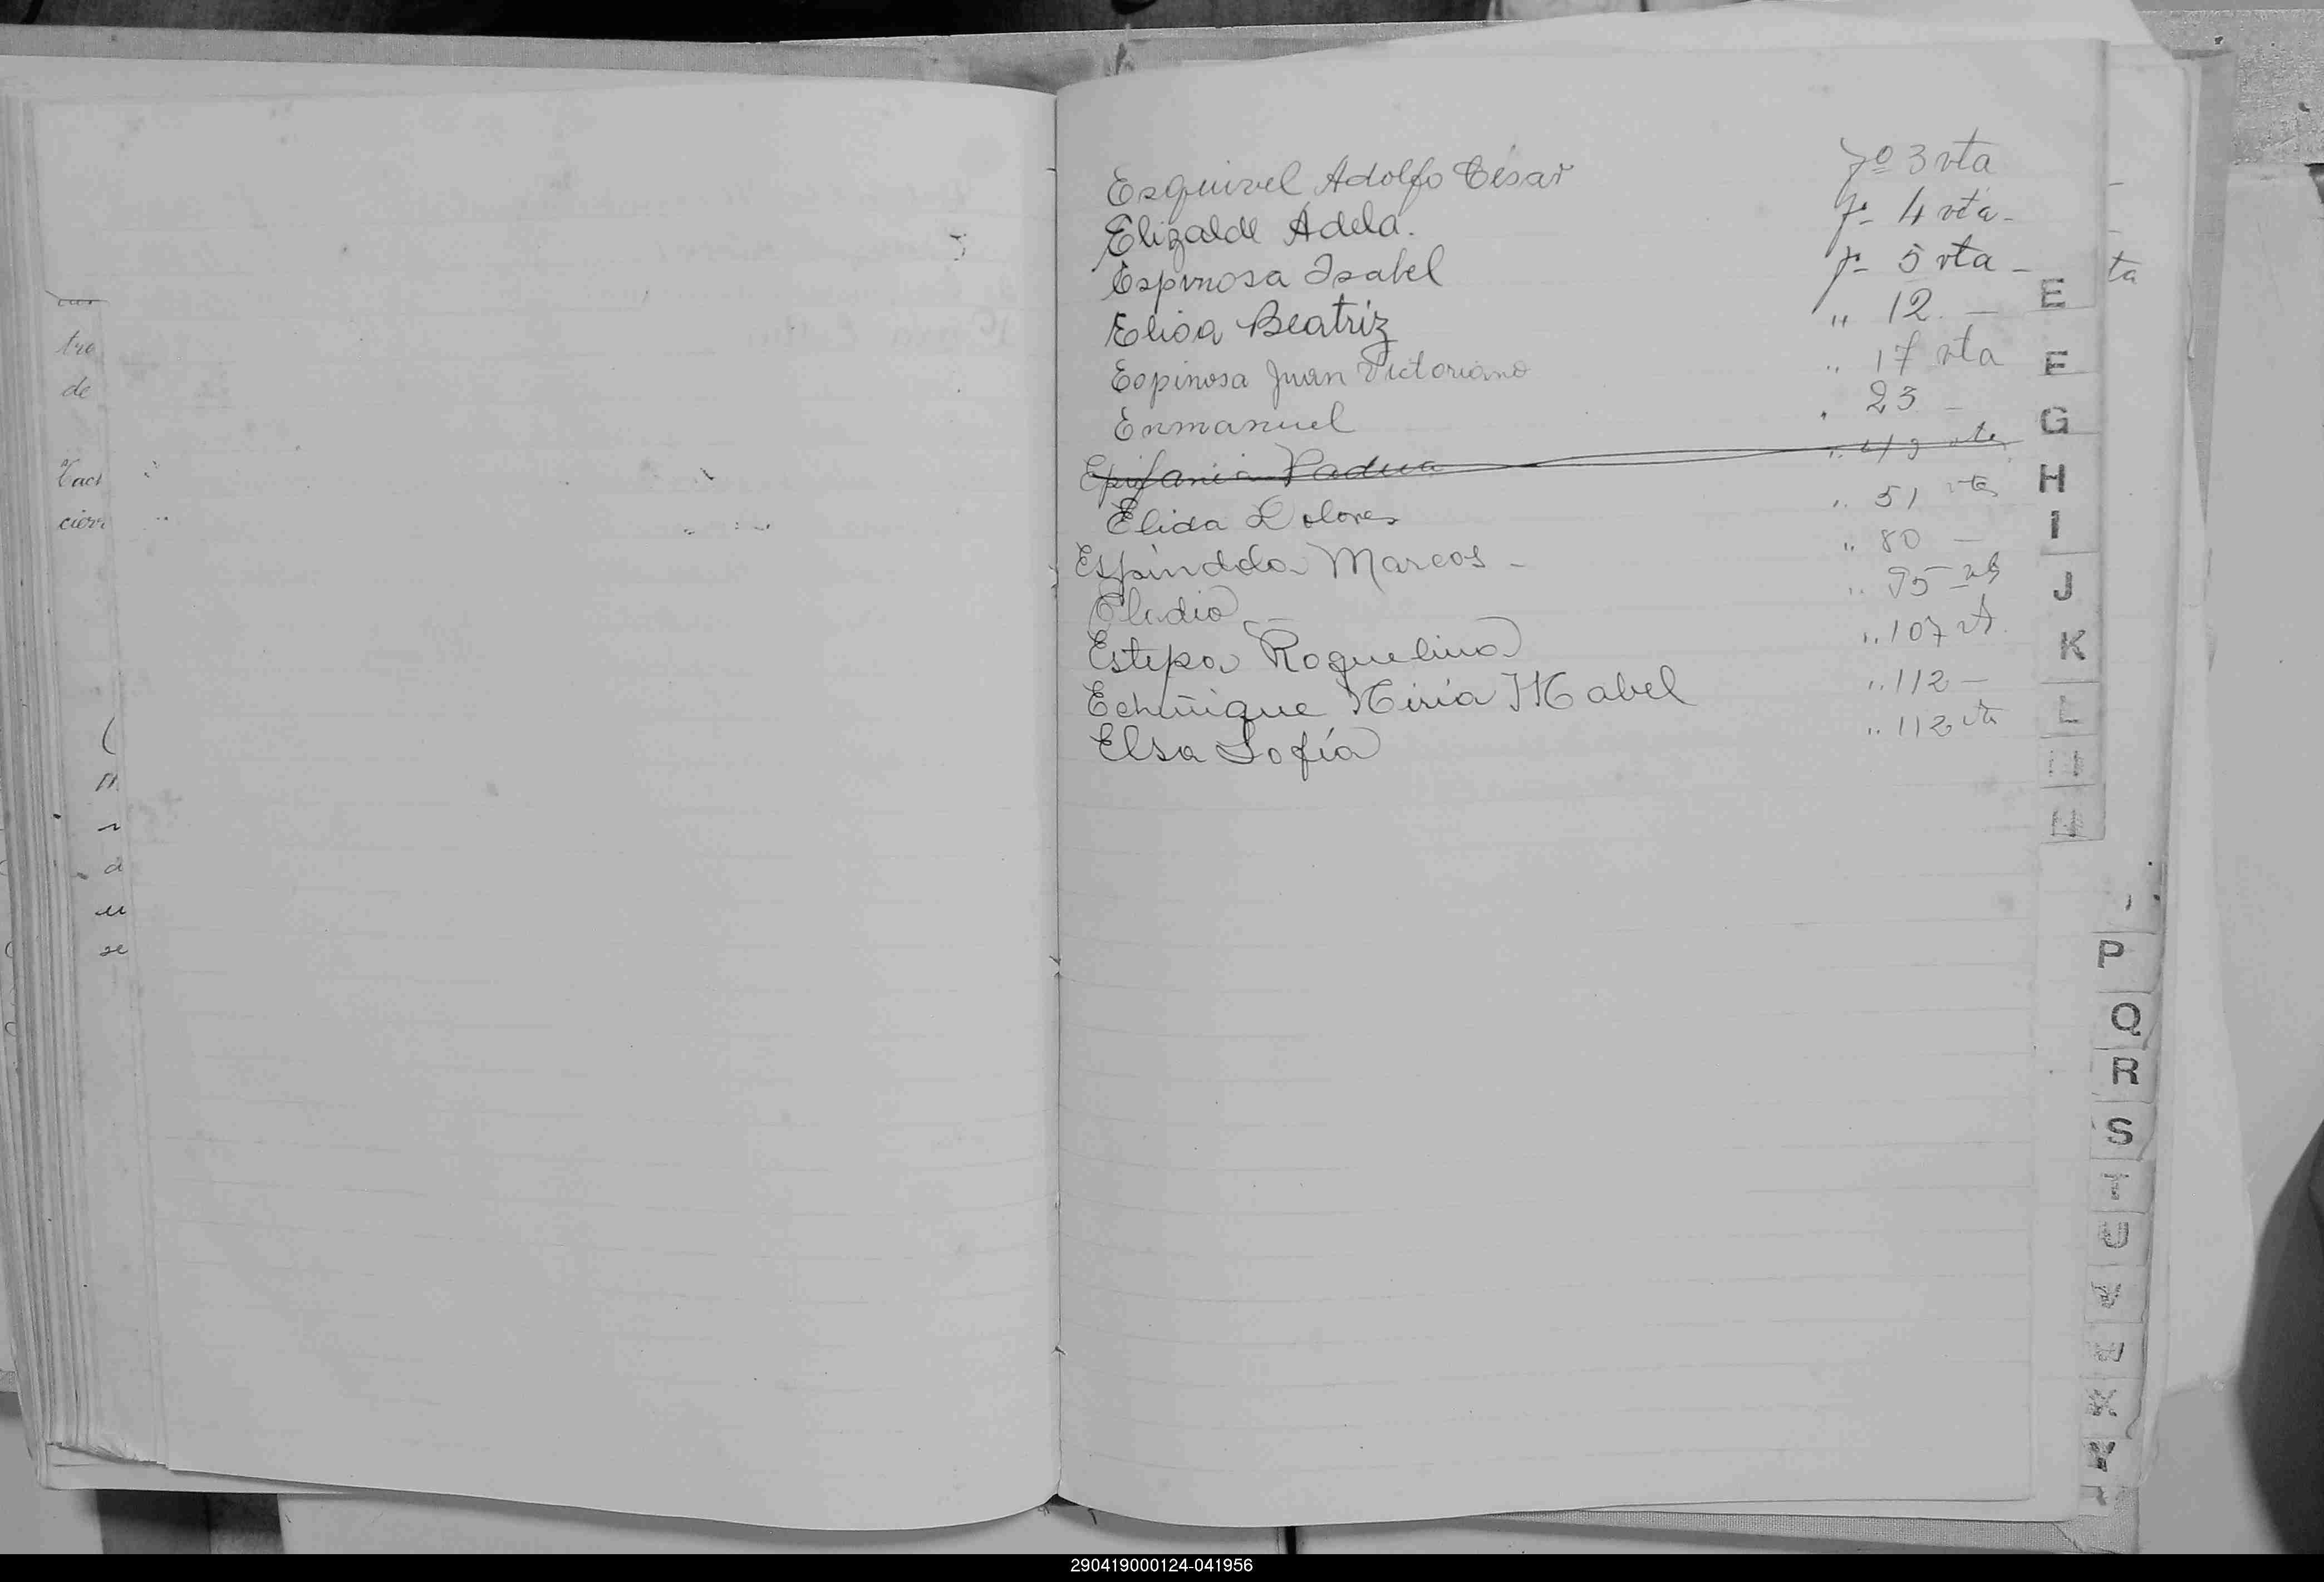 Esquivel Adolfo César fº 3 vta
Elizalde Adela. fº 4 vta -
Espinosa Isabel fº 5 vta -
Elisa Beatriz " 12. -
Espinosa Juan Victoriano " 17 vta
Enmanuel " 23 -
Epifania Padua
Elida Dolores " 51 vta
Espíndola Marcos - " 80 -
Eladio - " 95 vta
Estepa Roquelina " 107 vt
Echenique Miria Mabel " 112 -
Elsa Sofía " 112 vta
tro
de
se
ta
E
F
G
H
I
J
K
L
P
Q
R
S
T
U
X
Y
290419000124-041956